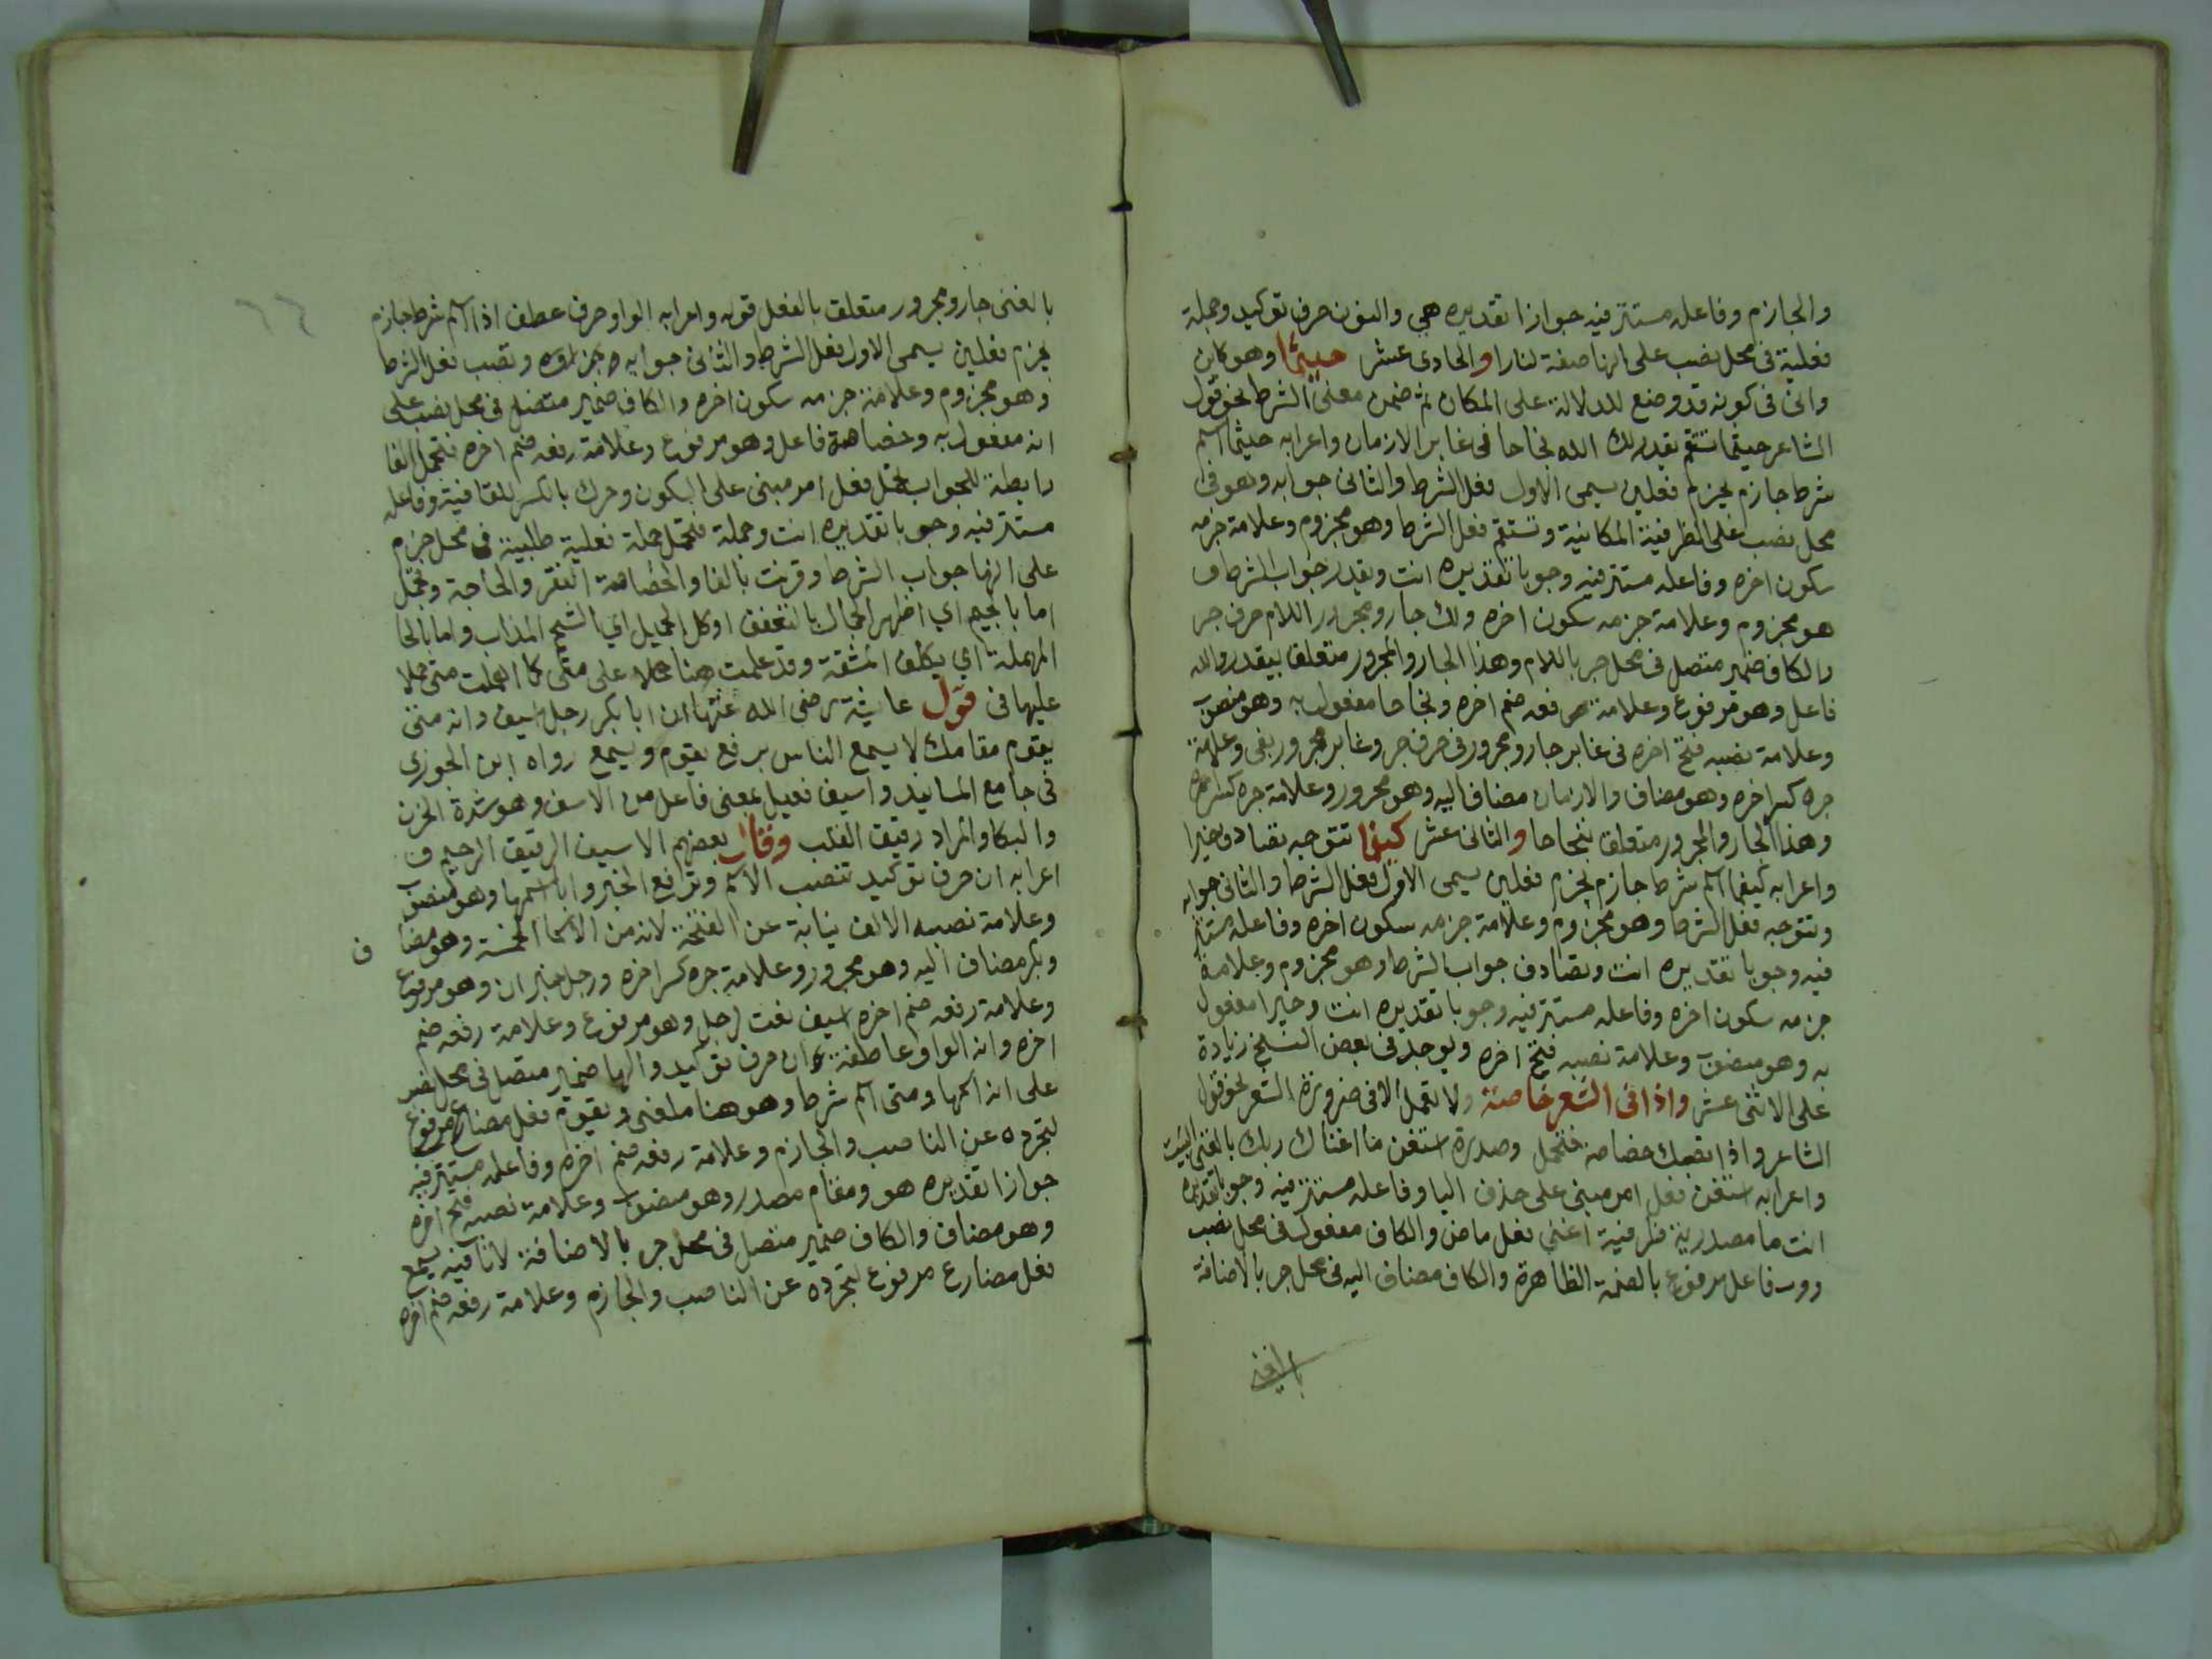 والجازم وفاعله مستتر فيه جوازا تقديره هي والنون حرف توكيد وجملة
فعلية في محل نصب على انها صفة لنارا والحادي عشر حيثما وهو كاين
واني في كونه قد وضع للدلالة على المكان ثم ضمن معنى الشرط نحو قول
الشاعر حيثما تستقم يقدر لك الله نجاحا في غابر الازمان واعرابه حيثما اسم
شرط جازم يجزم فعلين يسمى الاول فعل الشرط والثاني جوابه وهو في
محل نصب على الظرفية المكانية وتستقم فعل الشرط وهو مجزوم وعلامة جزمه
سكون اخره وفاعله مستتر فيه وجوبا تقديره انت ويقدر جواب الشرط و
هو مجزوم وعلامة جزمه سكون اخره ولك جار ومجرور اللام حرف جر
والكاف ضمير متصل في محل جر باللام وهذا الجار والمجرور متعلق بيقدر والله
فاعل وهو مرفوع وعلامة رفعه ضم اخره ونجاحا مفعول به وهو منصوب
وعلامة نصبه فتح اخره في غابر جار ومجرور في حرف جر وغابر مجرور بفي وعلامة
جره كسر اخره وهو مضاف والازمان مضاف اليه وهو مجرور وعلامة جره كسر اخره
وهذا الجار والمجرور متعلق بنجاحا والثاني عشر كيفما تتوجه تصادف خيرا
واعرابه كيفما اسم شرط جازم يجزم فعلين يسمى الاول فعل الشرط والثاني جوابه
وتتوجه فعل الشرط وهو مجزوم وعلامة جزمه سكون اخره وفاعله مستتر
فيه وجوبا تقديره انت وتصادف جواب الشرط وهو مجزوم وعلامة
جزمه سكون اخره وفاعله مستتر فيه وجوبا تقديره انت وخيرا مفعول
به وهو منصوب وعلامة نصبه فتح اخره ويوجد في بعض النسخ زيادة
على الاثنى عشر واذا في الشعر خاصة ولا تعمل الا في ضرورة الشعر نحو قول
الشاعر واذا تصبك خصاصة فتحمل وصدره استغن ما اغناك ربك بالغنى البيت
واعرابه استغن فعل امر مبني على حذف اليا وفاعله مستتر فيه وجوبا تقديره
انت ما مصدرية ظرفية اغنى فعل ماض والكاف مفعول في محل نصب
ورب فاعل مرفوع بالضمة الظاهرة والكاف مضاف اليه في محل جر بالاضافة
بالغنى جار ومجرور متعلق بالفعل قوله واعرابه الواو حرف عطف اذا اسم شرط جازم
يجزم فعلين يسمى الاول فعل الشرط والثاني جوابه وجزاؤه وتصب فعل الشرط
وهو مجزوم وعلامة جزمه سكون اخره والكاف ضمير متصل في محل نصب على
انه مفعول به وخصاصة فاعل وهو مرفوع وعلامة رفعه ضم اخره فتحمل الفا
رابطة للجواب تحمل فعل امر مبني على السكون وحرك بالكسر للقافية وفاعله
مستتر فيه وجوبا تقديره انت وجملة فتحمل جملة فعلية طلبية في محل جزم
على انها جواب الشرط وقرنت بالفا والخصاصة الفقر والحاجة وتجمل
اما بالجيم اي اظهر الجمال بالتعفف او كل الجميل اي الشحم المذاب واما بالحا
المهملة اي تكلف المشقة وقد عملت هنا حملا على متى كما اهملت متى حملا
عليها في قول عايشة رضي الله عنها ان ابا بكر رجل اسيف وانه متى
يقوم مقامك لا يسمع الناس برفع يقوم ويسمع رواه ابن الجوزي
في جامع المسانيد واسيف فعيل بمعنى فاعل من الاسف وهو شدة الحزن
والبكا والمراد رقيق القلب وقال بعضهم الاسيف الرقيق الرحيم و
اعرابه ان حرف توكيد تنصب الاسم وترفع الخبر وابا اسمها وهو منصوب
وعلامة نصبه الالف نيابة عن الفتحة لانه من الاسما الخمسة وهو مضا ف
وبكر مضاف اليه وهو مجرور وعلامة جره كسر اخره ورجل خبر ان وهو مرفوع
وعلامة رفعه ضم اخره اسيف نعت لرجل وهو مرفوع وعلامة رفعه ضم
اخره وانه الواو عاطفة ان حرف توكيد والها ضمير متصل في محل نصب
على انه اسمها ومتى اسم شرط وهو هنا ملغى ويقوم فعل مضارع مرفوع
لتجرده عن الناصب والجازم وعلامة رفعه ضم اخره وفاعله مستتر فيه
جوازا تقديره هو ومقام مصدر وهو منصوب وعلامة نصبه فتح اخره
وهو مضاف والكاف ضمير متصل في محل جر بالاضافة لا نافية يسمع
فعل مضارع مرفوع لتجرده عن الناصب والجازم وعلامة رفعه ضم اخره